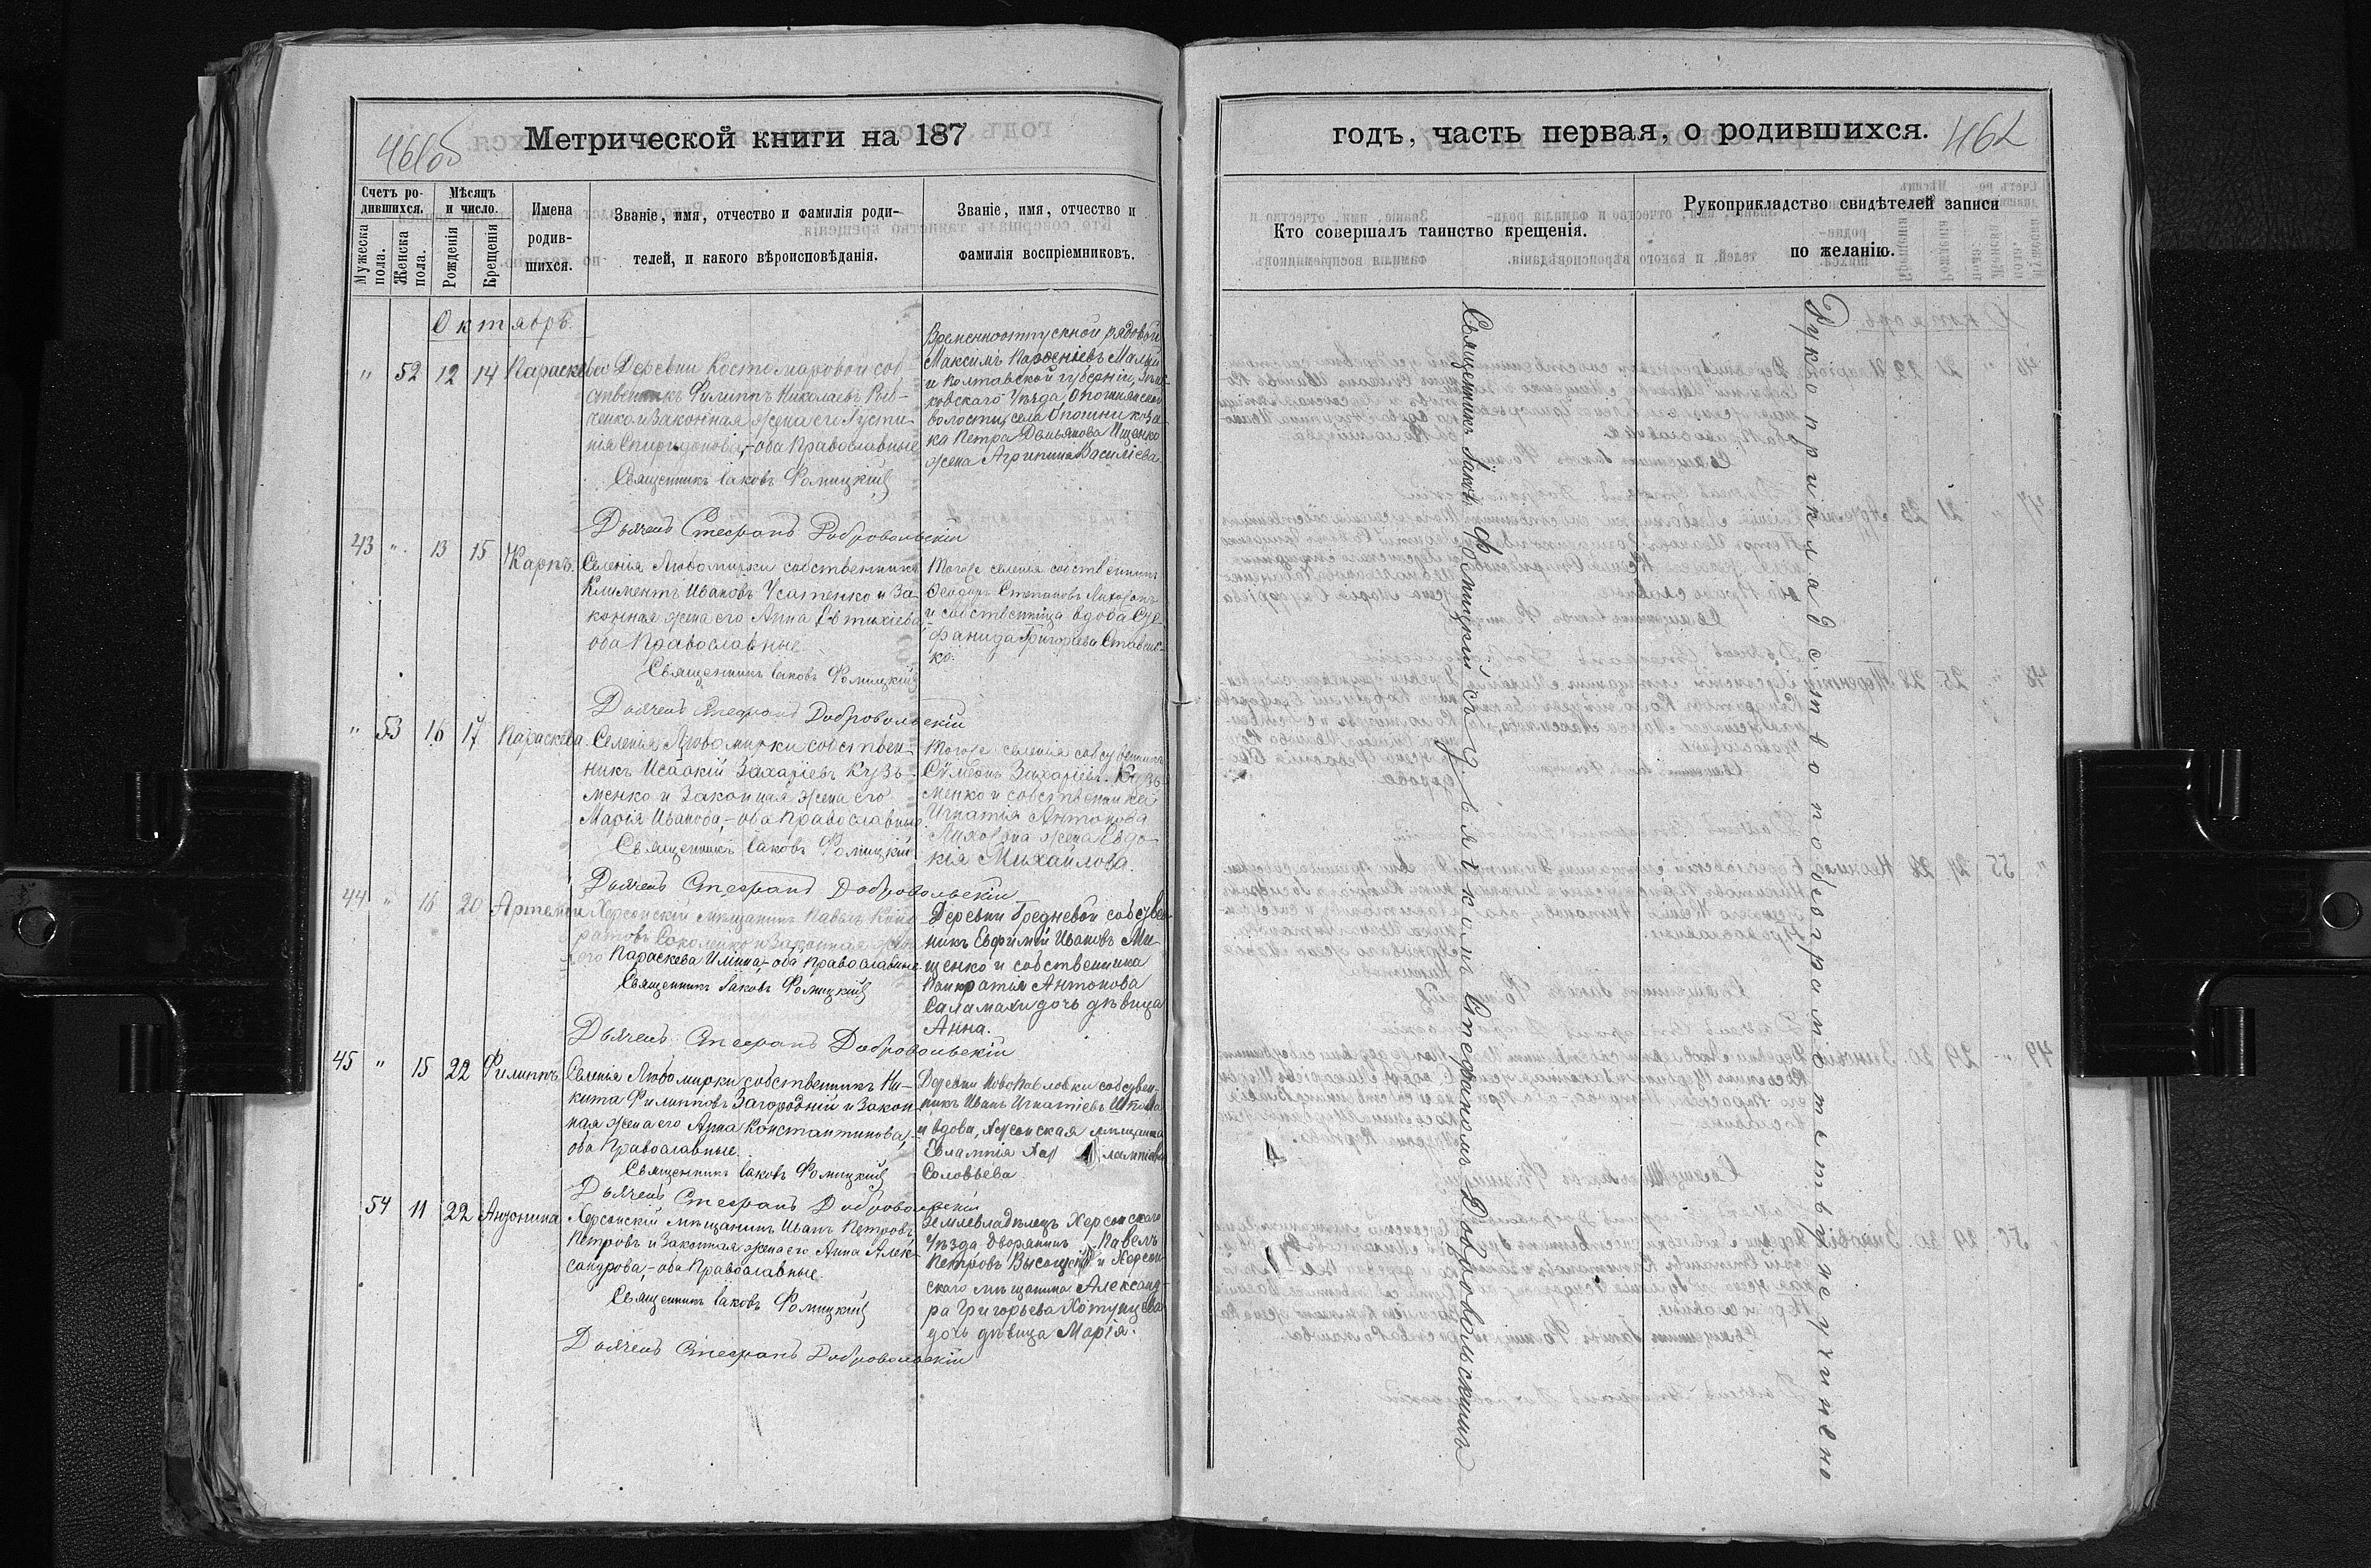 461об
Метрической книги на 187
Счетъ ро-
дившихся.
Мужеска пола.
Женска пола.
Мѣсяцъ
и число.
Рожденія
Крещенія
Имена
родив-
шихся.
Званіе, имя, отчество и фамилія роди-
телей, и какого вѣроисповѣданія.
Званіе, имя, отчество и
фамилія воспріемниковъ.
Октябрь.
" 52 12 14 Параскева
Деревни Костомаровой соб-
ственникъ Филиппъ Николаевъ
ченко и законная жена его Іусти-
нія Спиридонова, - оба Православные
Священникъ Іаковъ Фомицкій
Дьячекъ Стефанъ Добровольскій
Временноотпускной рядовой
Максимъ Парѳеніевъ Малый
и Полтавской губерніи,
ковскаго уѣзда, Опошнянской
волости, села Опошни коза-
ка Петра Демьянова Ищенко
жена Агрипина Василіева.
43 " 13 15 Карпъ.
Селенія Любомирки собственникъ
Климентъ Ивановъ Усатенко и за-
конная жена его Анна Евтихіева,
оба Православные
Священникъ Іаковъ Фомицкій
Дьячекъ Стефанъ Добровольскій
Того же селенія собственникъ
Ѳеодоръ Степановъ
и собственница вдова
фанида Григорьева
ко.
" 53 16 17 Параскева.
Селенія Любомирки собствен-
никъ Исаакій Захаріевъ Кузь-
менко и законная жена его
Марія Иванова, - оба Православные
Священникъ Іаковъ Фомицкій
Дьячекъ Стефанъ Добровольскій
Того же селенія собственникъ
Сѵмеонъ Захаріевъ Кузь-
менко и собственника
Игнатія Антонова
жена Евдо-
кія Михайлова.
44 " 16 20 Артемій
Херсонскій мѣщанинъ Павелъ Конд-
ратовъ Соколенко и законная жена
его Параскева Ильина, - оба Православные
Священникъ Іаковъ Фомицкій
Дьячекъ Стефанъ Добровольскій
Деревни Бредневой собствен-
никъ Евфимій Ивановъ Ми-
щенко и собственника
Панкратія Антонова
Саламахи дочь дѣвица
Анна.
45 " 15 22 Филиппъ
Селенія Любомирки собственникъ Ни-
кита Филипповъ Загородній и закон-
ная жена его Анна Константинова, -
оба Православные.
Священникъ Іаковъ Фомицкій
Дьячекъ Стефанъ Добровольскій
Деревни Новопавловки собствен-
никъ Иванъ Игнатіевъ
и вдова, Херсонская мѣщанка
Евлампія
Соловьева
54 11 22 Антонина
Херсонскій мѣщанинъ Иванъ Петровъ
Петровъ и законная жена его Анна Алек-
сандрова, - оба Православные.
Священникъ Іаковъ Фомицкій
Дьячекъ Стефанъ Добровольскій
Землевладѣлецъ Херсонскаго
уѣзда дворянинъ Павелъ
Петровъ Высоцкій и Херсон-
скаго мѣщанина Александ-
ра Григорьева
дочь дѣвица Марія.
годъ, часть первая, о родившихся.
462
Кто совершалъ таинство крещенія.
Рукоприкладство свидѣтелей записи
по желанію.
Священникъ Іаковъ Фомицкій съ дьячкомъ Стефаномъ Добровольскимъ
Рукоприкладство по безграмотству не учинено